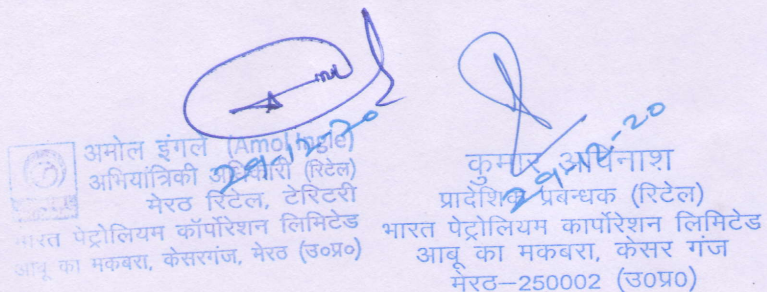 अमोल इंगले (Amol Ingle)
अभियांत्रिकी अधिकारी (रिटेल)
मेरठ रिटेल, टेरिटरी
भारत पेट्रोलियम कॉर्पोरेशन लिमिटेड
आबू का मकबरा, केसरगंज, मेरठ (उ०प्र०)
29-12-20
कुमार अविनाश
प्रादेशिक प्रबन्धक (रिटेल)
भारत पेट्रोलियम कार्पोरेशन लिमिटेड
आबू का मकबरा, केसर गंज
मेरठ–250002 (उ0प्र0)
29-12-20